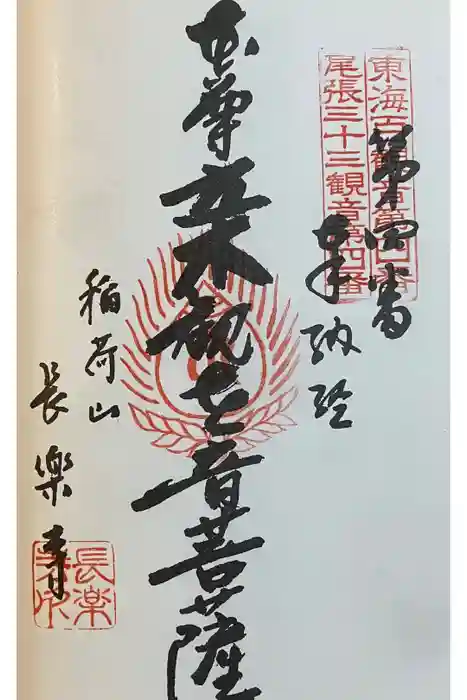 東海百観音第四番
尾張三十三観音第四番
第四番
奉納経
本尊立木観世音菩薩
稲荷山
長樂寺
長楽寺印